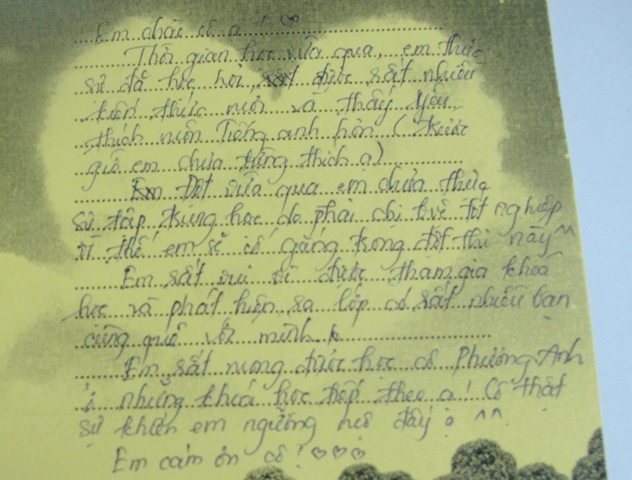 Em chào cô ạ! ♡
Thời gian học vừa qua, em thực
sự đã học hỏi được rất nhiều
kiến thức mới và thấy yêu
thích môn Tiếng anh hơn (trước
giờ em chưa từng thích ạ)
Đợt vừa qua em chưa thực
sự tập trung học do phải bảo vệ tốt nghiệp
vì thế em sẽ cố gắng trong đợt thi này ^^
Em rất vui vì được tham gia khoá
học và phát hiện ra lớp có rất nhiều bạn
cùng quê với mình
Em rất mong được học cô Phương Anh
ở những khoá học tiếp theo ạ! Cô thật
sự khiến em ngưỡng mộ đấy ạ ^^
Em cảm ơn cô! ♡♡♡